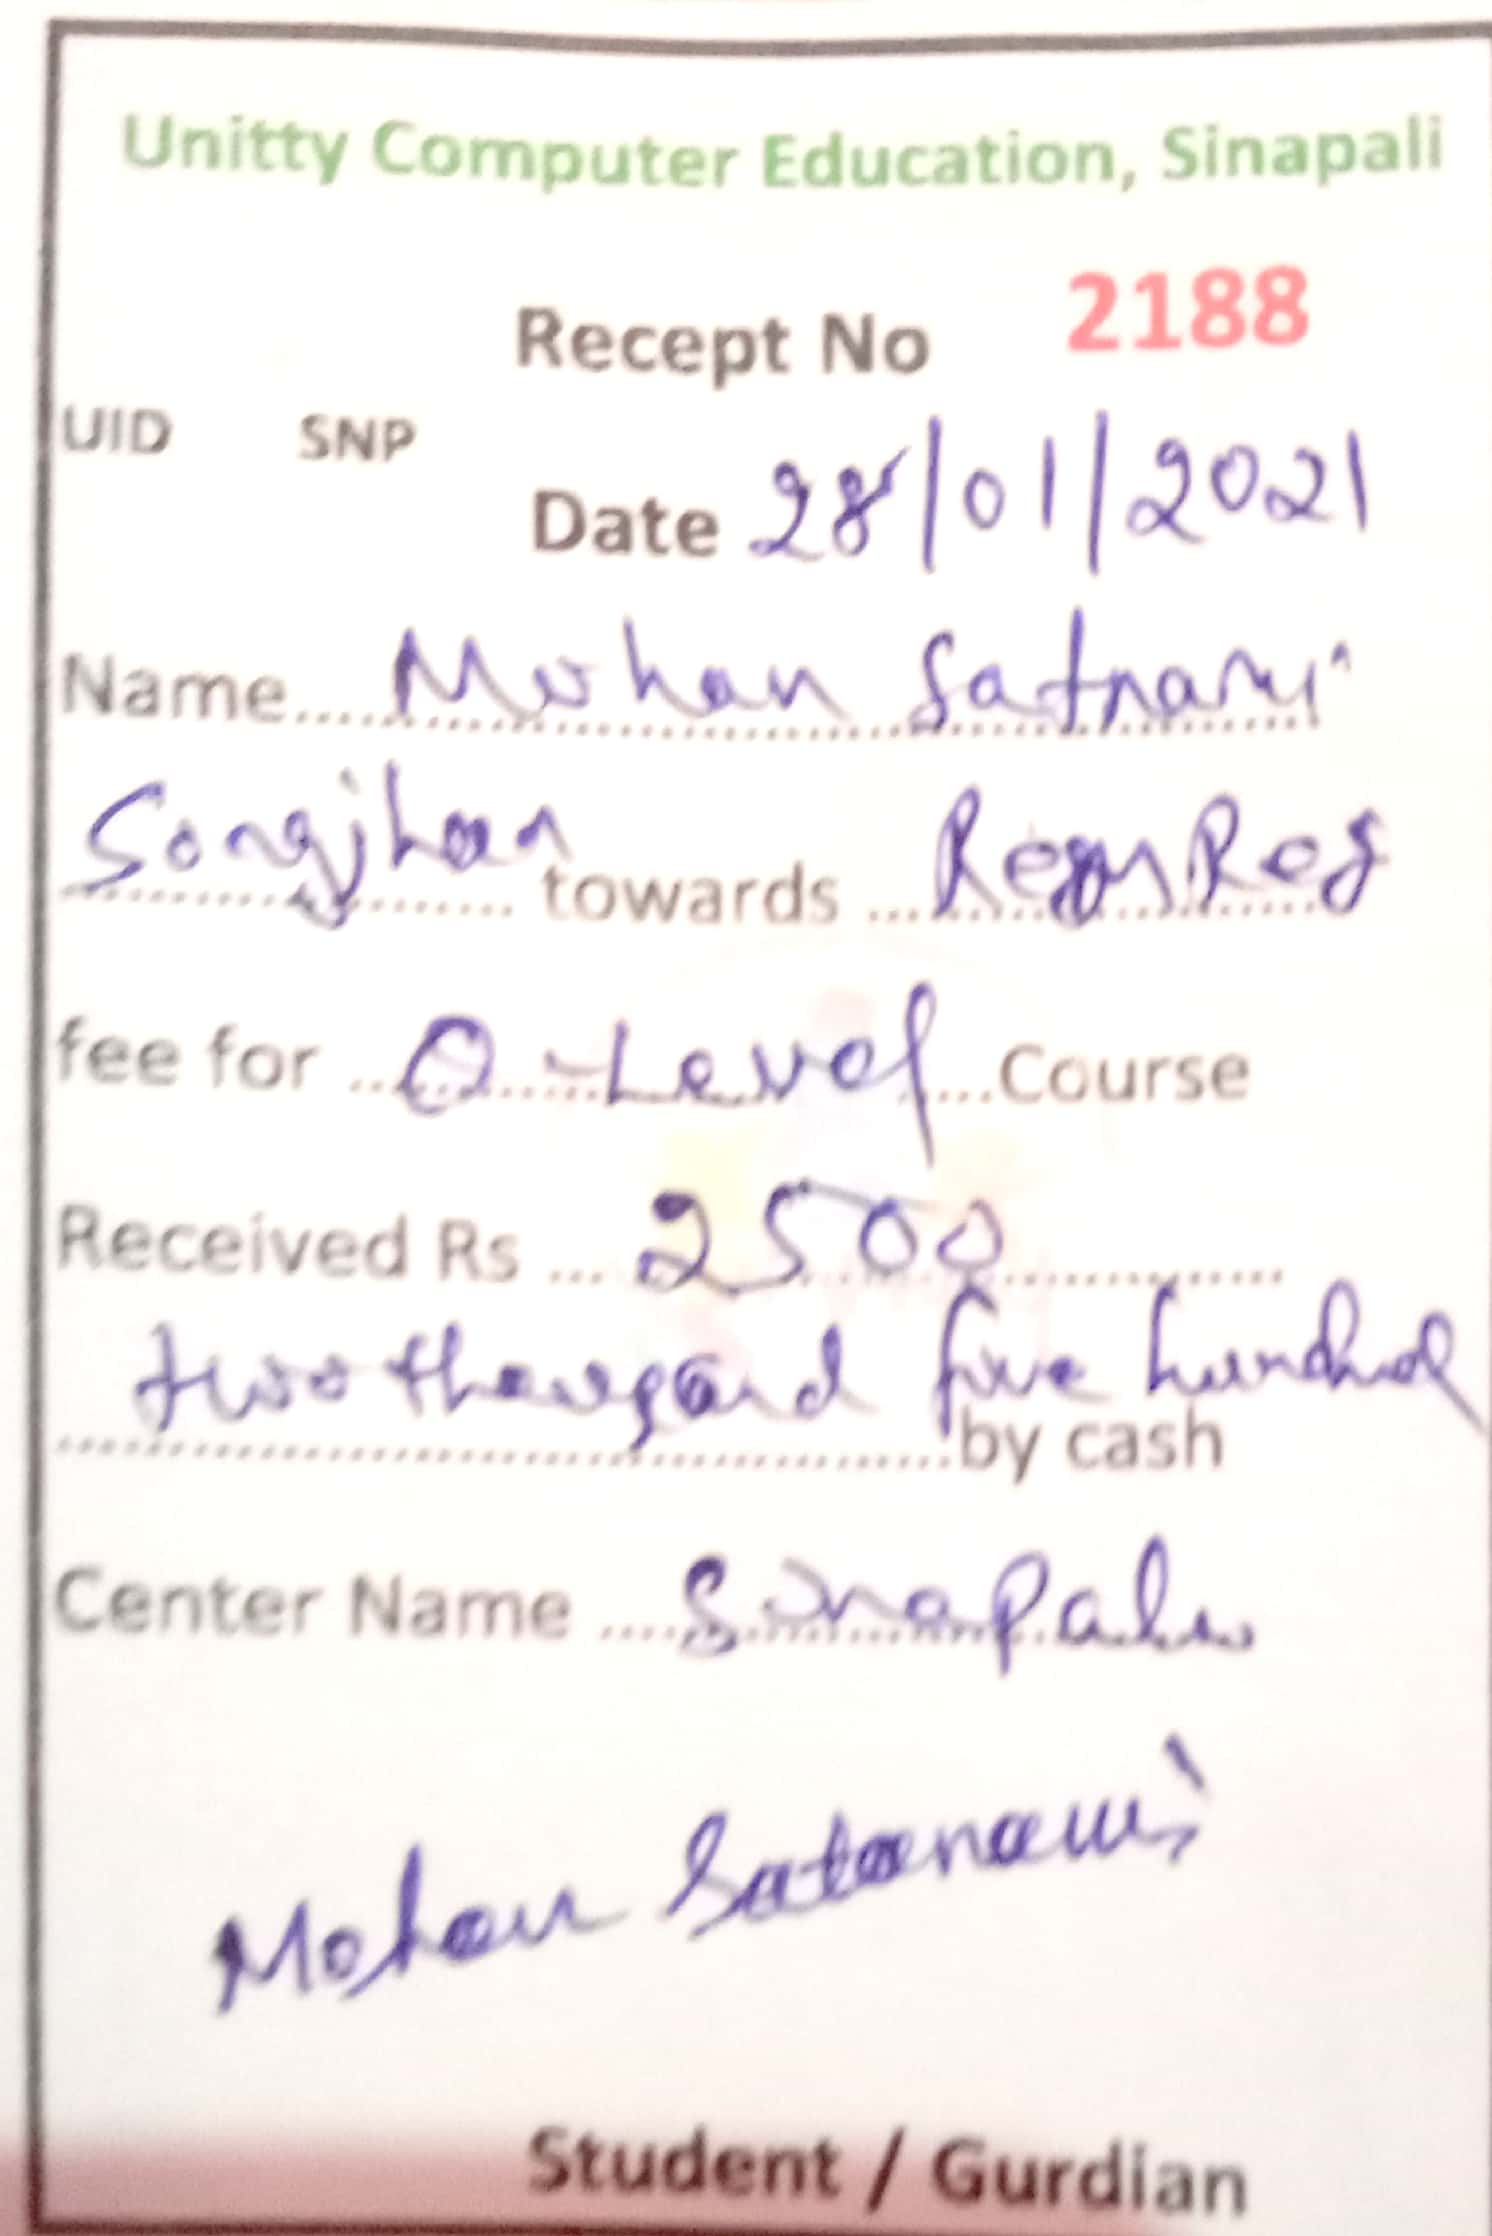 Unitty Computer Education, Sinapali
Recept No 2188
UID SNP
Date 28/01/2021
Name.... Mohan Satnami
Songjhan towards ... Reg
fee for ... O-Level ... Course
Received Rs ... 2500
two thousand five hundred
by cash
Center Name .... Sinapali
Mohan Satanami
Student / Gurdian